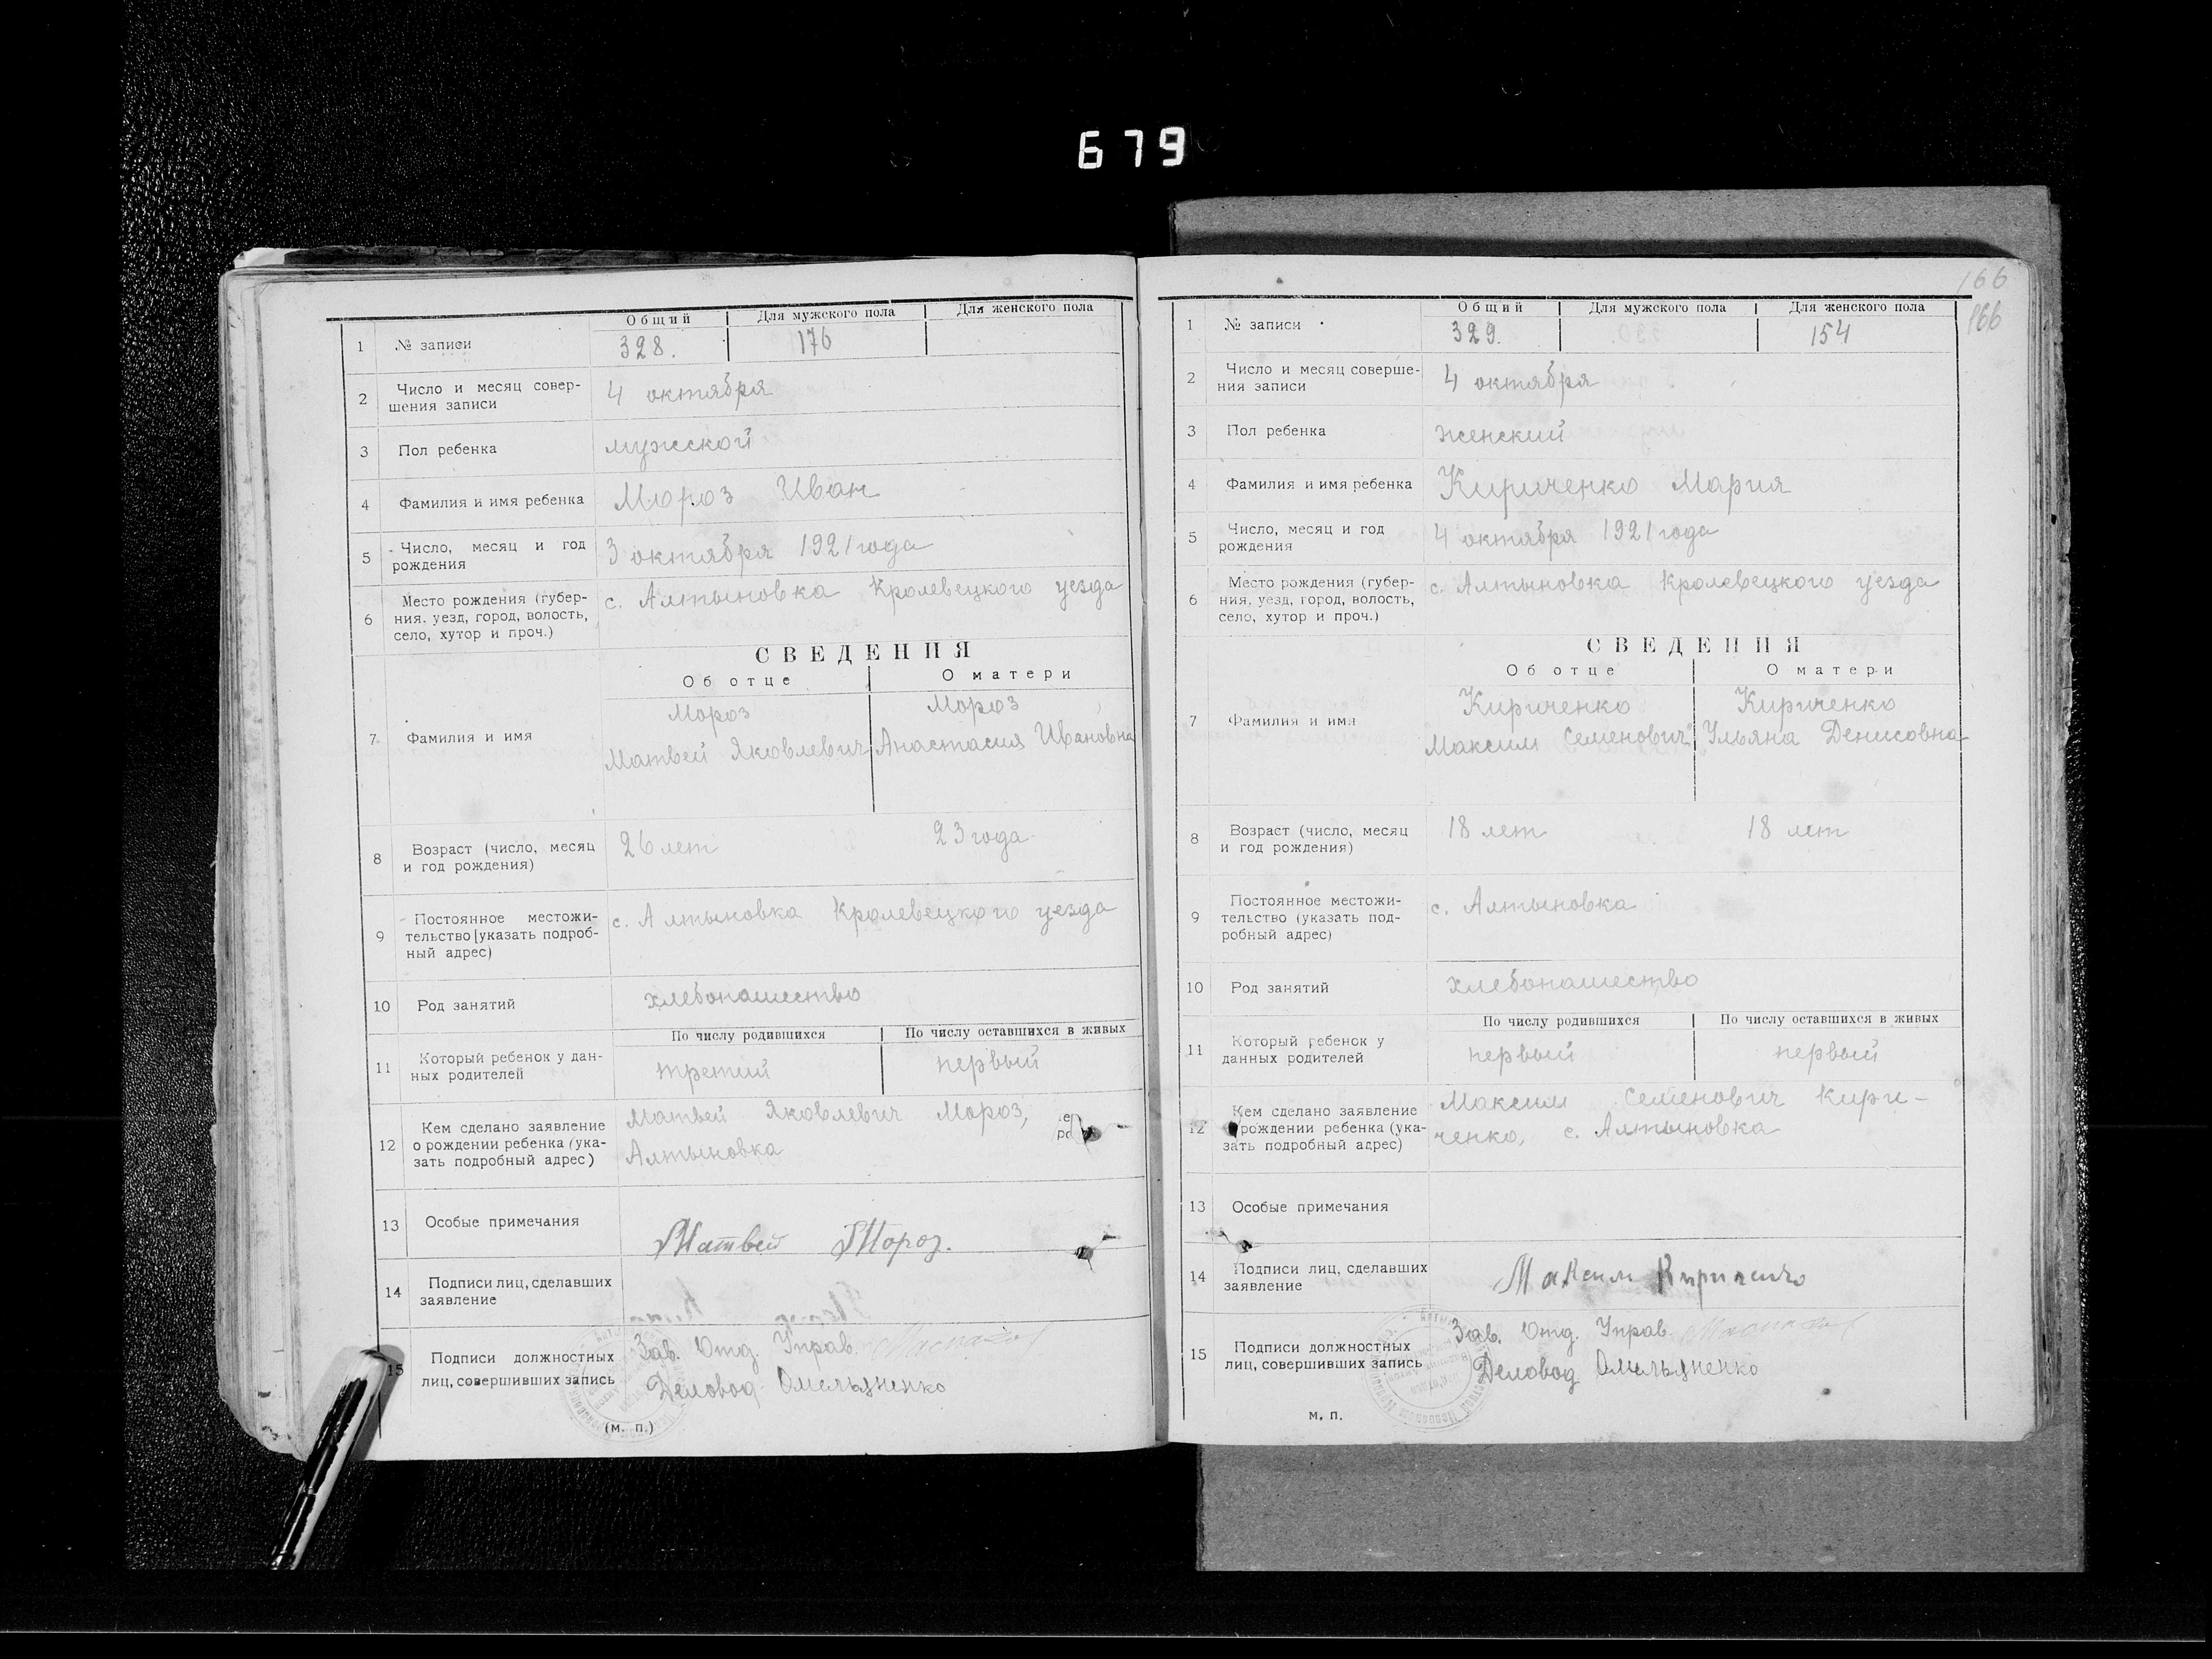 679
Общий Для мужского пола Для женского пола
1 № записи 328. 176
2 Число и месяц совер-
шения записи 4 октября
3 Пол ребенка мужской
4 Фамилия и имя ребенка Мороз Иван
5 Число, месяц и год
рождения 3 октября 1921 года
6 Место рождения (губер-
ния, уезд, город, волость,
село, хутор и проч.) с. Алтыновка Кролевецкого уезда
СВЕДЕНИЯ
Об отце О матери
7 Фамилия и имя Мороз Мороз
Матвей Яковлевич Анастасия Ивановна
8 Возраст (число, месяц
и год рождения) 26 лет 23 года
9 Постоянное местожи-
тельство [указать подроб-
ный адрес) с. Алтыновка Кролевецкого уезда
10 Род занятий хлебопашество
По числу родившихся По числу оставшихся в живых
11 Который ребенок у дан-
ных родителей третий первый
12 Кем сделано заявление
о рождении ребенка (ука-
зать подробный адрес) Матвей Яковлевич Мороз,
Алтыновка
13 Особые примечания
Матвей Мороз.
14 Подписи лиц, сделавших
заявление
15 Подписи должностных
лиц, совершивших запись Зав. Отд. Управ.
Деловод Омельяненко
(м. п.)
166
166
Общий Для мужского пола Для женского пола
1 № записи 329. 154
2 Число и месяц соверше-
ния записи 4 октября
3 Пол ребенка женский
4 Фамилия и имя ребенка Кириченко Мария
5 Число, месяц и год
рождения 4 октября 1921 года
6 Место рождения (губер-
ния, уезд, город, волость,
село, хутор и проч.) с. Алтыновка Кролевецкого уезда
СВЕДЕНИЯ
Об отце О матери
7 Фамилия и имя Кириченко Кириченко
Максим Семенович Ульяна Денисовна
8 Возраст (число, месяц
и год рождения) 18 лет 18 лет
9 Постоянное местожи-
тельство (указать под-
робный адрес) с. Алтыновка
10 Род занятий хлебопашество
По числу родившихся По числу оставшихся в живых
11 Который ребенок у
данных родителей первый первый
12 Кем сделано заявление
рождении ребенка (ука-
зать подробный адрес) Максим Семенович Кири-
ченко, с. Алтыновка
13 Особые примечания
14 Подписи лиц, сделавших
заявление Максим Кириченко
15 Подписи должностных
лиц, совершивших запись Зав. Отд. Управ.
Деловод Омельяненко
м. п.